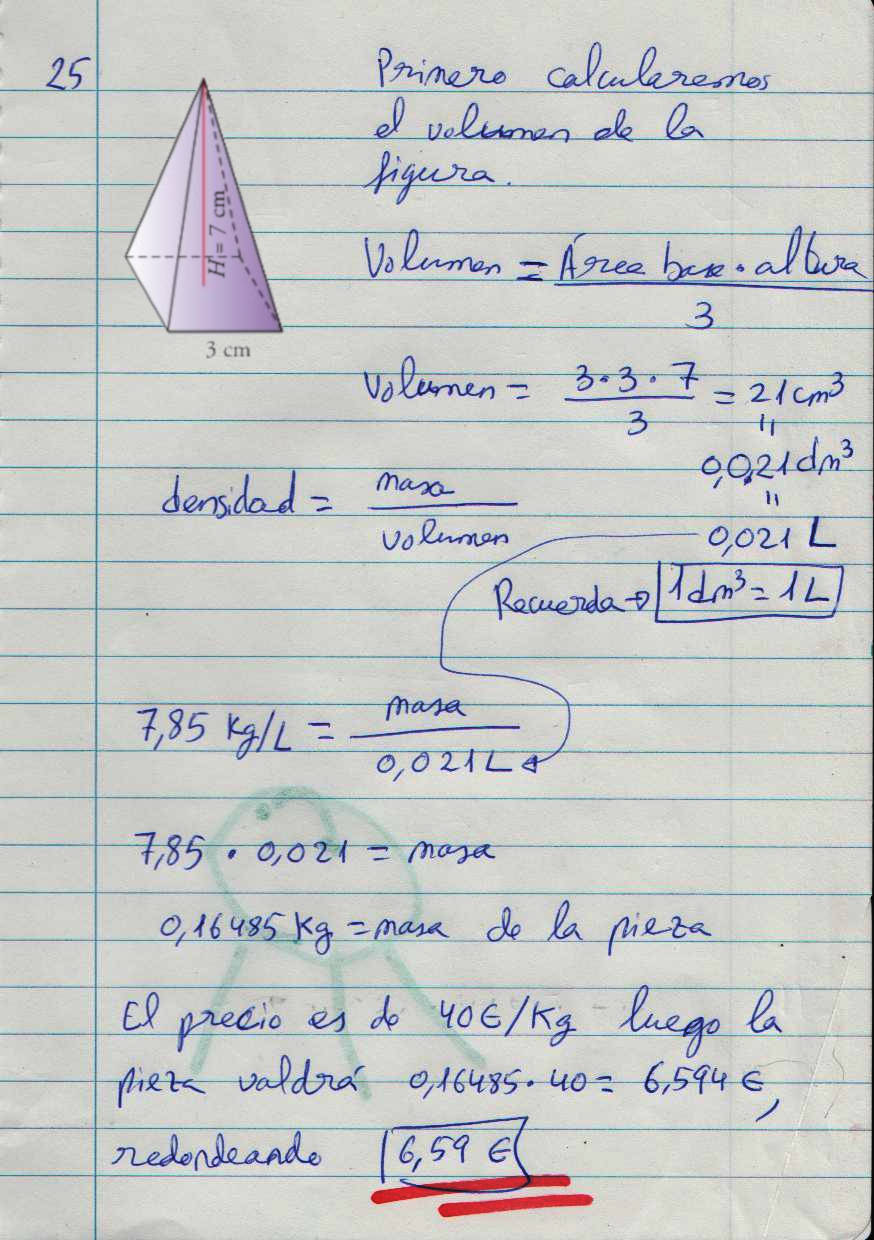 25
Primero calcularemos
el volumen de la
figura.
H = 7 cm
3 cm
Volumen = Área base · altura
3
Volumen = 3·3·7 = 21 cm³
3
=
0,021 dm³
=
densidad = masa
volumen
0,021 L
Recuerda → 1 dm³ = 1 L
7,85 Kg/L = masa
0,021 L
7,85 · 0,021 = masa
0,16485 Kg = masa de la pieza
El precio es de 40€/Kg luego la
pieza valdrá 0,16485·40 = 6,594 €,
redondeando 6,59 €